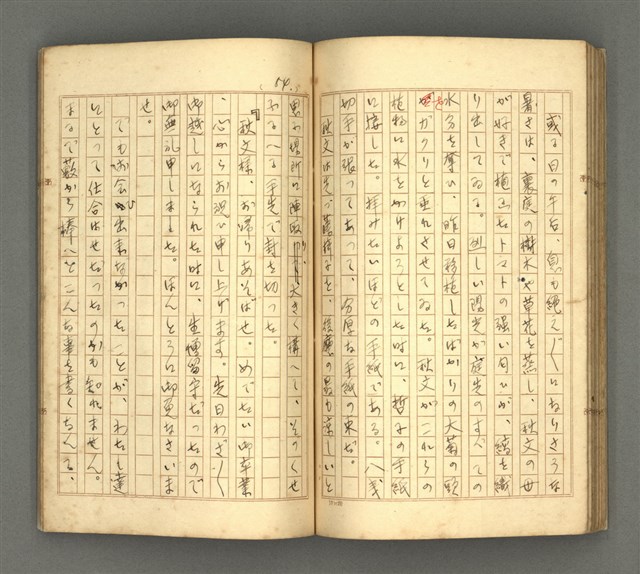 或る日の午后、息も絶え〲になりさうな
暑さは、裏庭の樹木や草花を蒸し、秋文の母
が好きで植えたトマトの強い匂ひが、縞を織
り出してゐる。烈しい陽光が庭先のすべての
水分を奪ひ、昨日移植したばかりの大菊の頭
をガクリと垂れさせてゐた。秋文がこれらの
植物に水をかけようとした時に、哲子の手紙
に接した。珍しいほどの手紙である。八戔
切手が張ってあって、分厚な手紙の束だ。
秋文は先づ、後の最も涼しいと
54.
思ふ場所に陣取り大きく構へし、そのくせ
ふるへる手先で封を切った。
「秋文様、お帰りあそばせ。めでたい御卒業
、心からお祝ひ申し上げます。先日わざ〱
御越しになられた時に、生憎留守だったので
御無礼申しました。ほんとうに御免なさいま
せ。
でもお会ひ出来なかったことが、わたし達
にとって仕合はせだったのかも知れません。
まるで藪から棒へとこんな事を書くなんて、